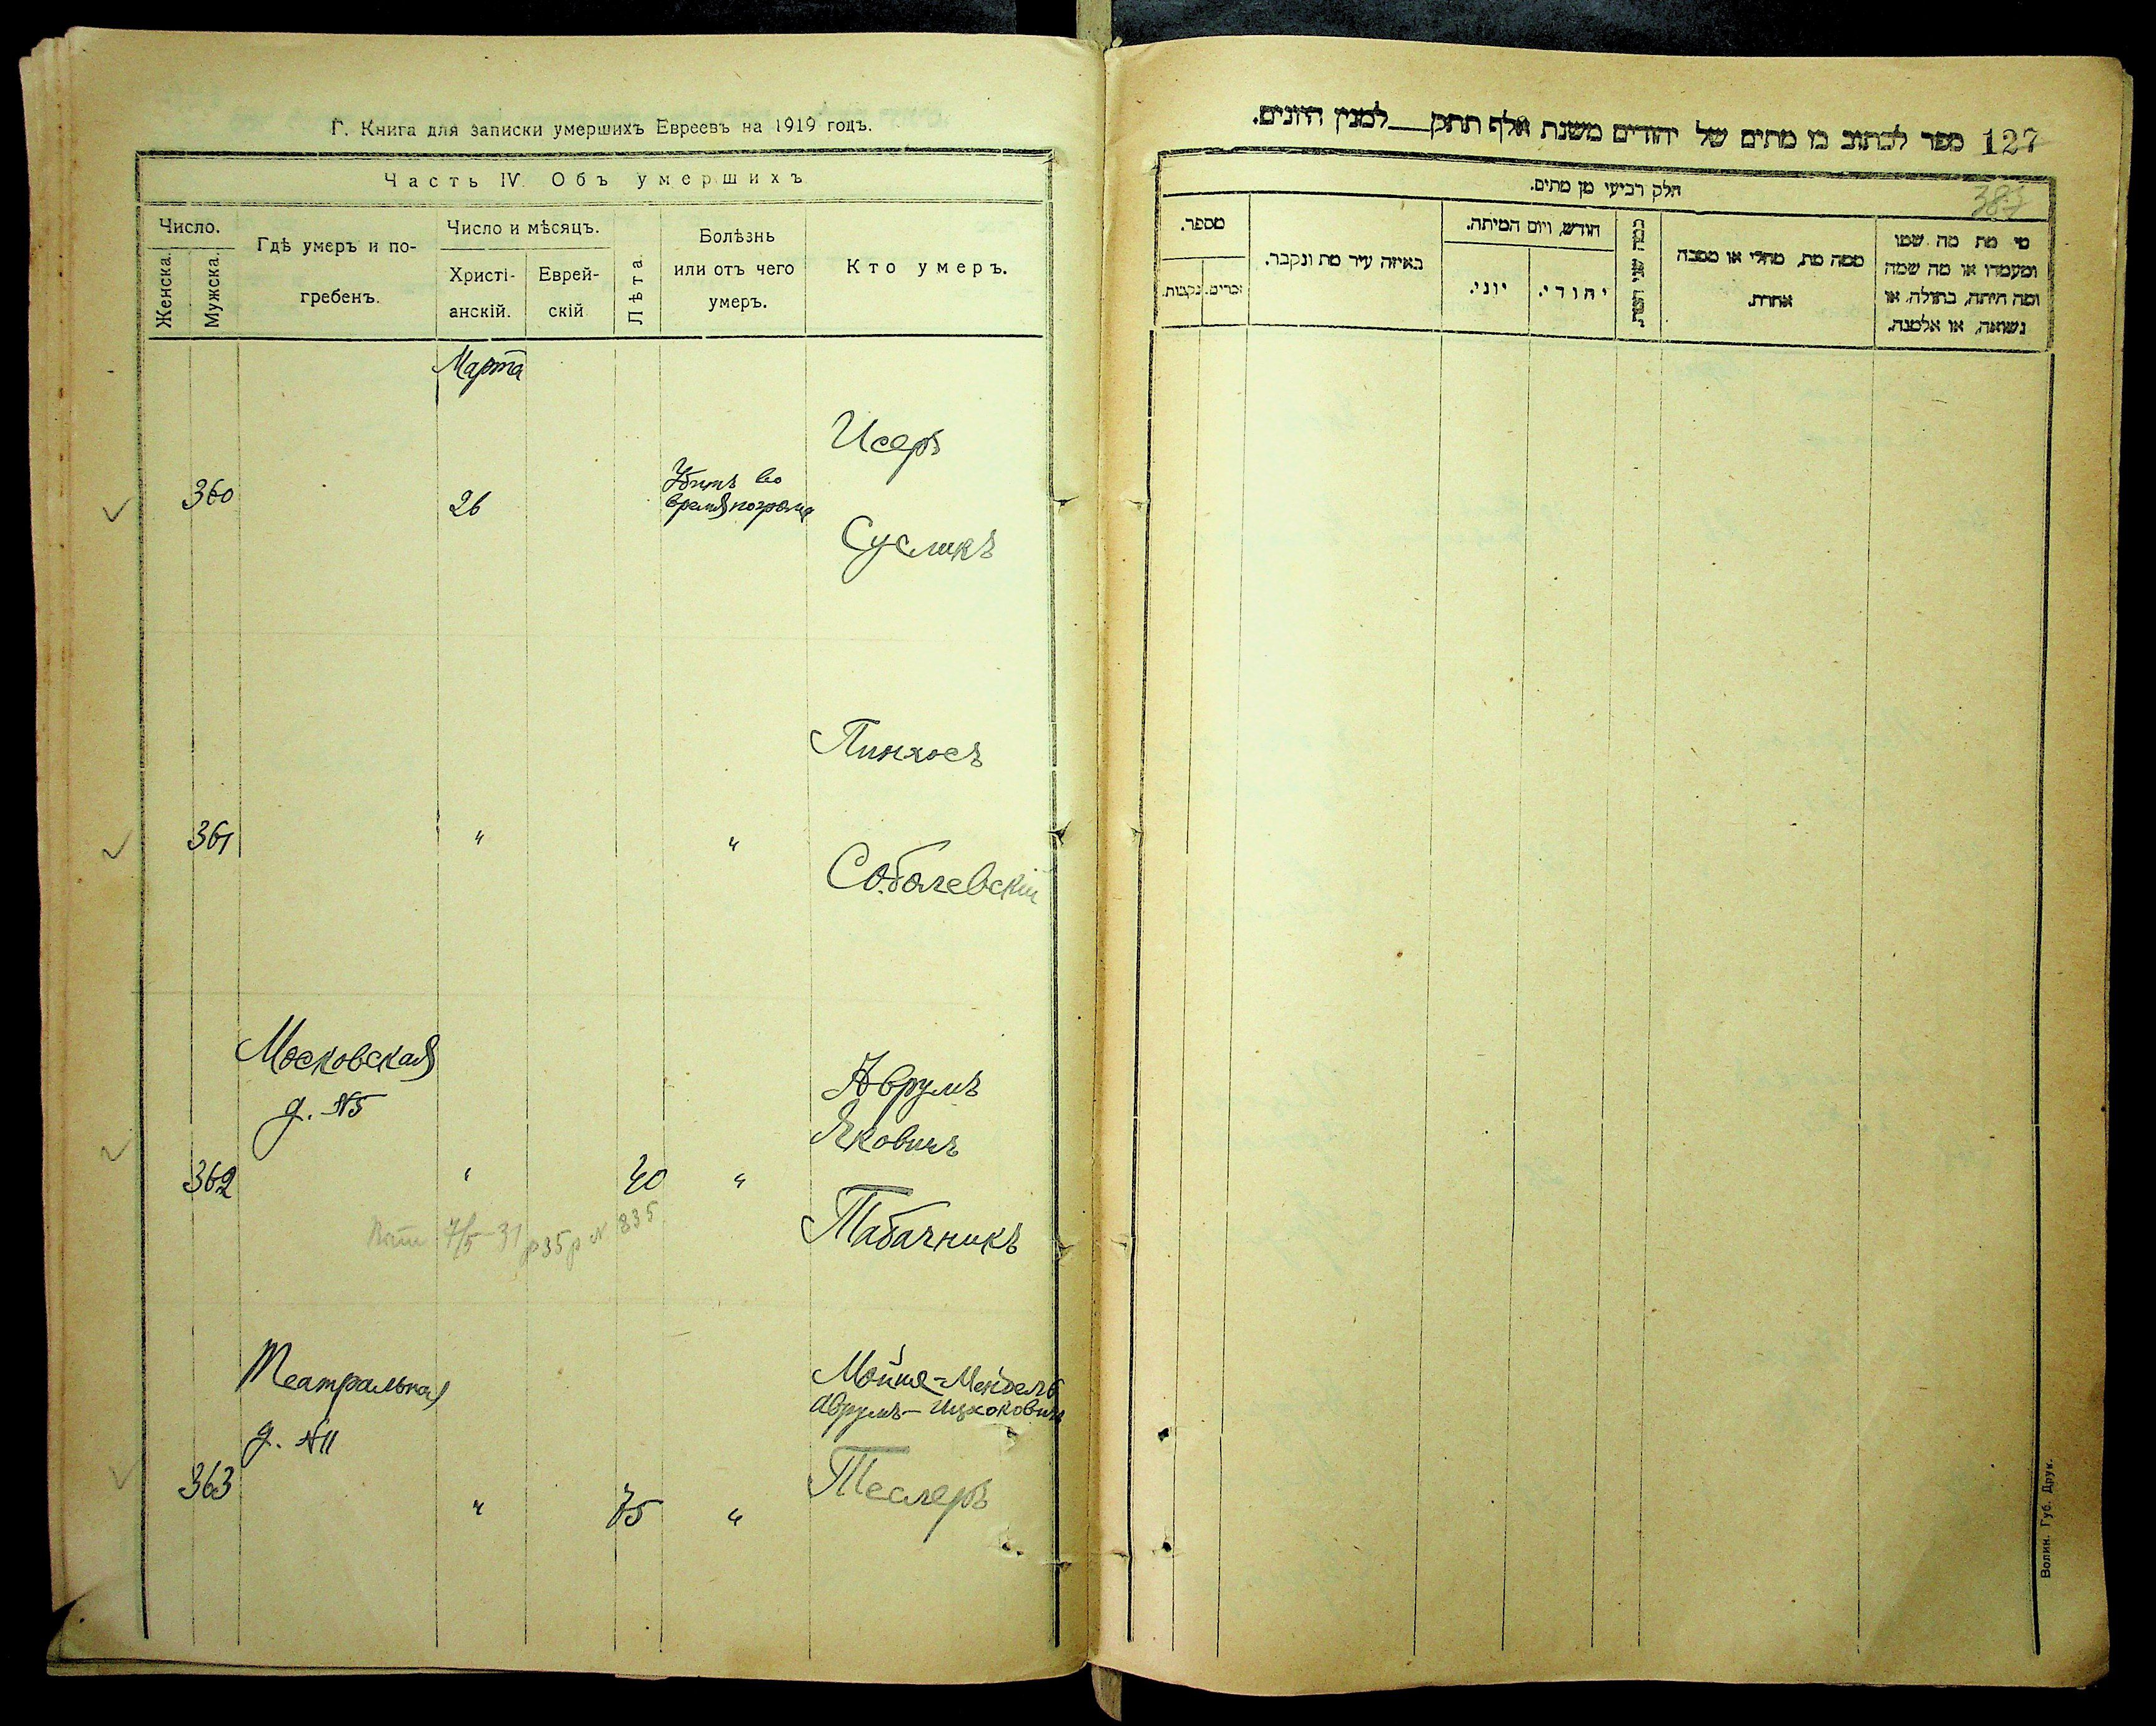 Г. Книга для записки умершихъ Евреевъ на 1919 годъ.
Часть IV. Объ умершихъ
Число.
Женска.
Мужска.
Гдѣ умеръ и по-
гребенъ.
Число и мѣсяцъ.
Христі-
анскій.
Еврей-
скій
Лѣта
Болѣзнь
или отъ чего
умеръ.
Кто умеръ.
Марта
Исеръ
360
26
Убитъ во
время погрома
Сусликъ
Пинхосъ
361 " "
Соболевскій
Московская
д. №5
Аврумъ
Яковичъ
362 " 40 "
Табачникъ
7/5-31 р35р № 835
Театральная
д. №11
Мойше-Мендель
Аврумъ-Ицкоковичъ
363 " 75 "
Теслеръ
127 ספר לכתוב בו מתים של יהודים משנת אלף תתקן למנין היונים.
387
חלק רביעי מן מתים.
מספר.
זכרים.
נקבות.
באיזה עיר מת ונקבר.
חודש, ויום המיתה.
יוני.
יהודי.
כמה שני
ממה מת, מחלי או מסבה
אחרת.
מי מת מה שמו
ומעמדו או מה שמה
ומה היתה, בתולה, או
נשואה, או אלמנה.
Волин. Губ. Друк.